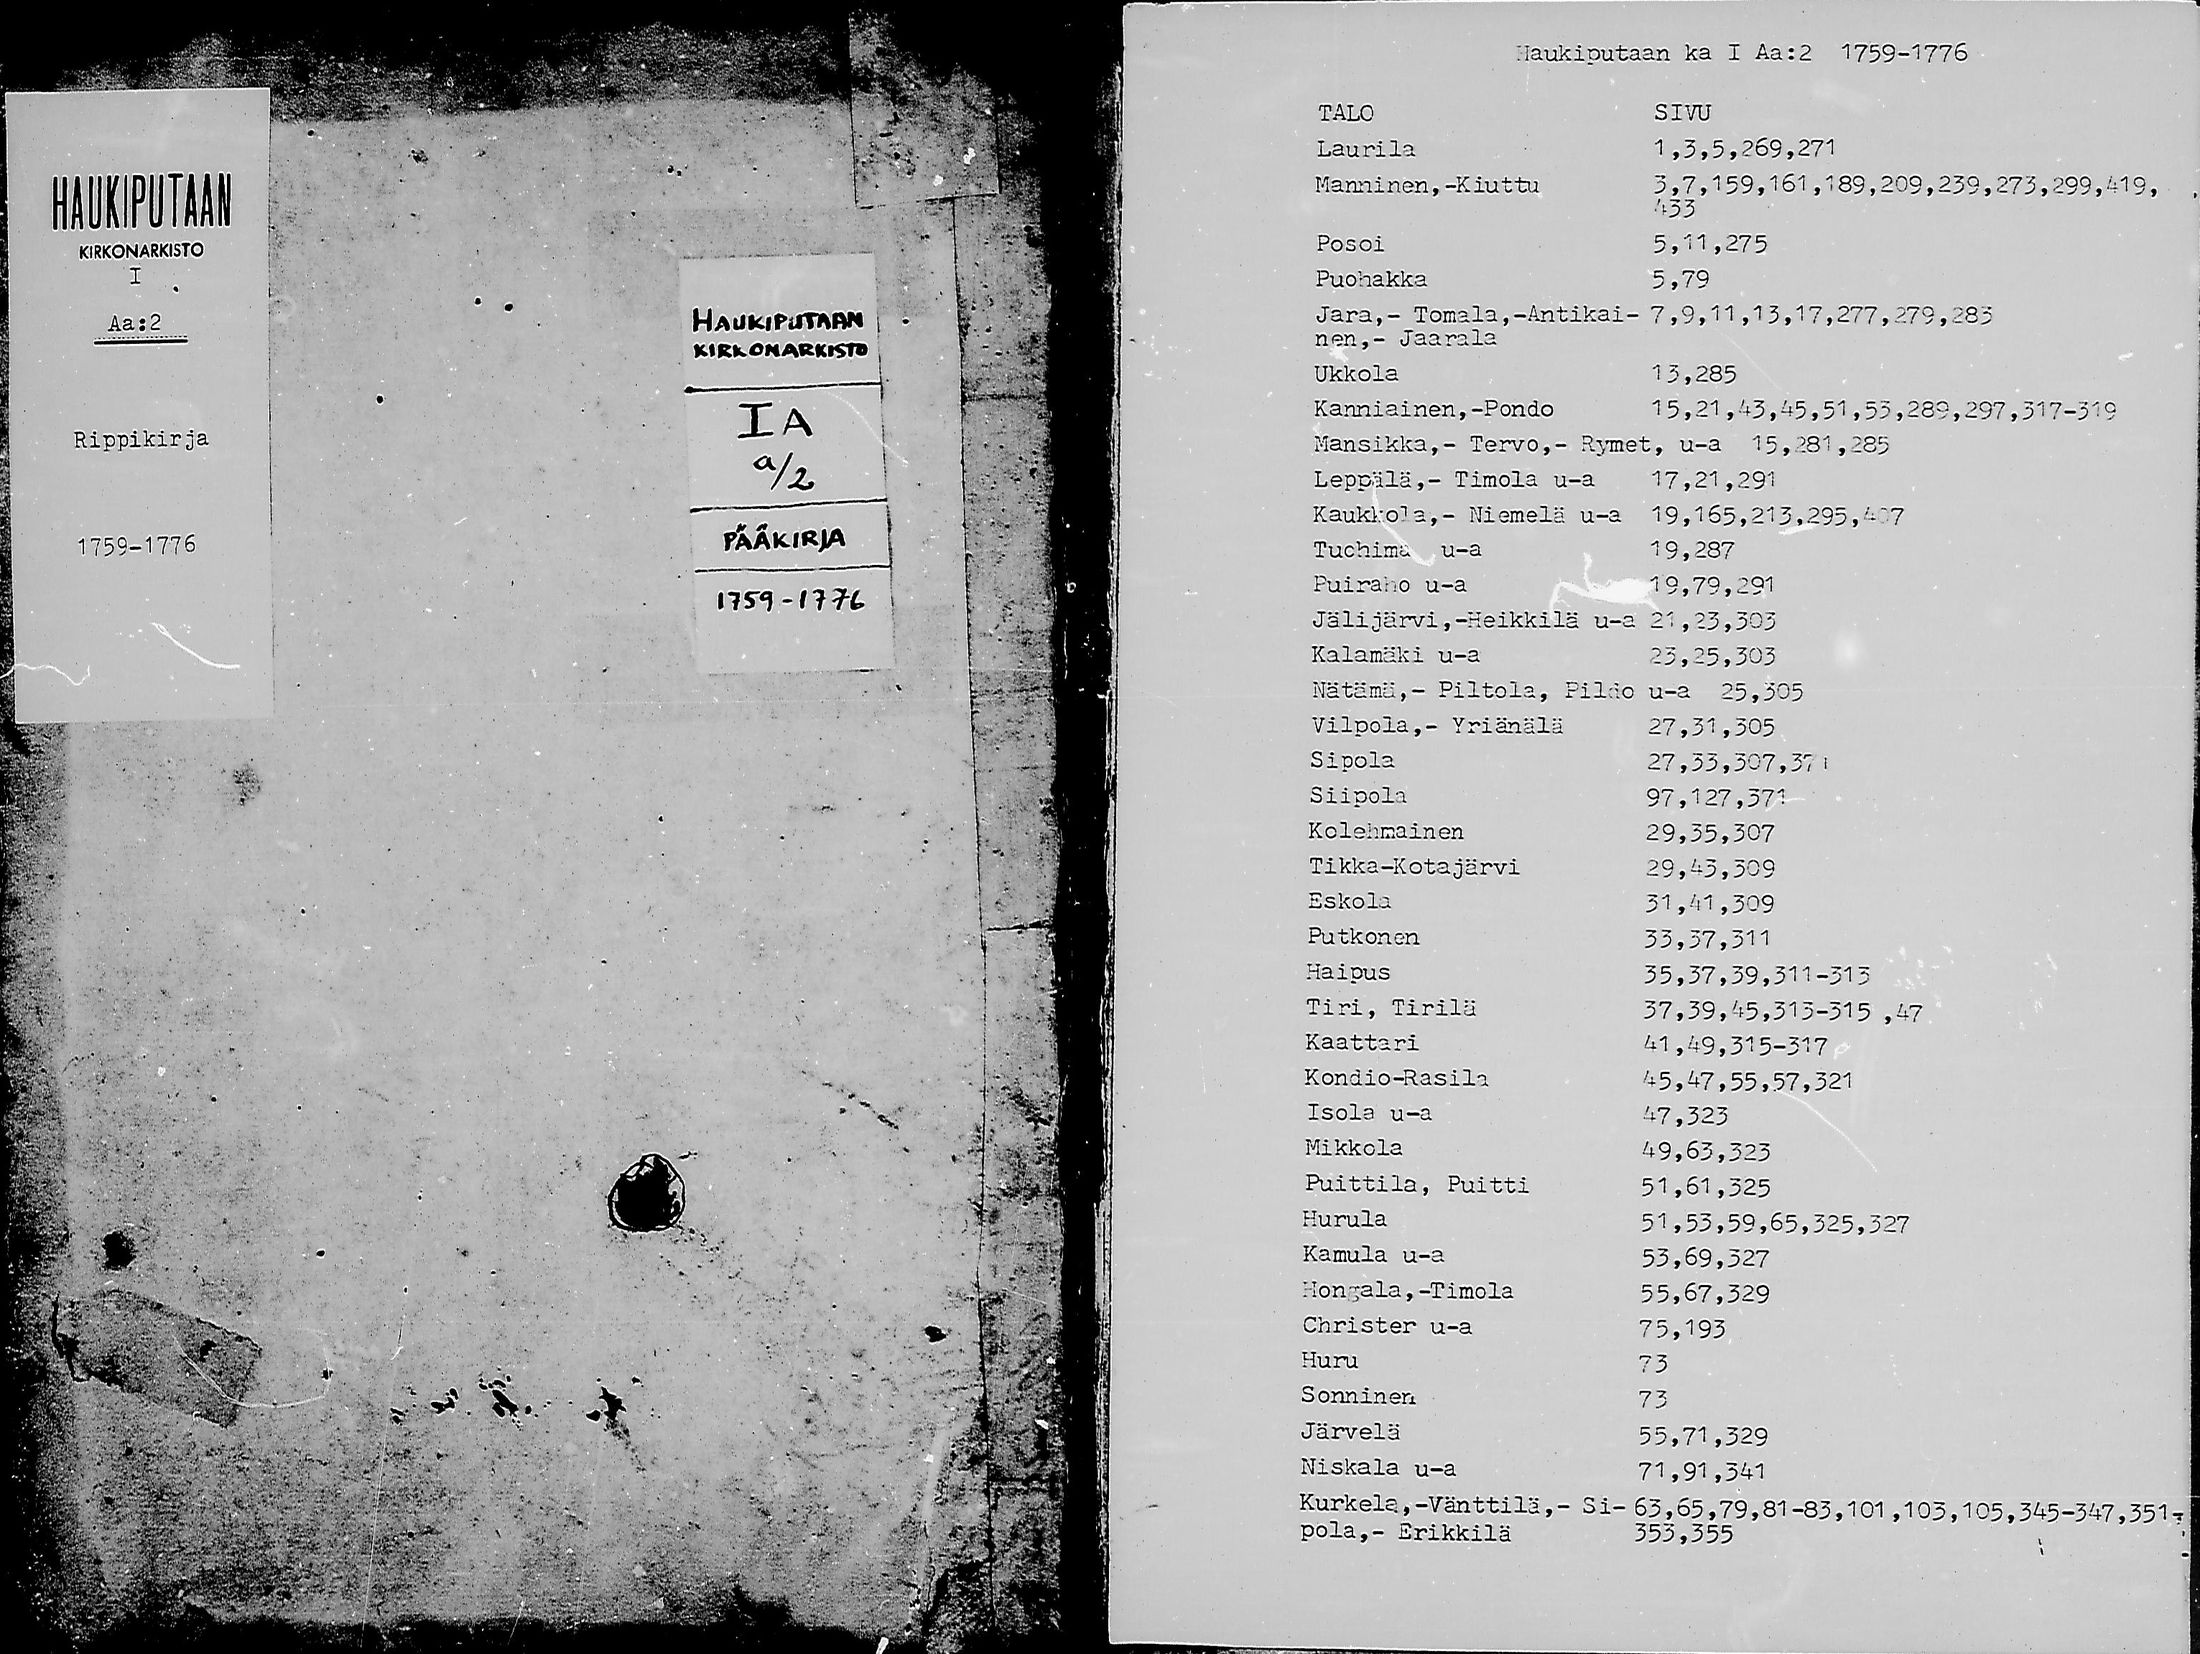 HAUKIPUTAAN
KIRKONARKISTO
I
Aa:2
Rippikirja
1759-1776
HAUKIPUTAAN
KIRKONARKISTO
IA
a/2
PÄÄKIRJA
1759-1776
Haukiputaan ka I Aa:2 1759-1776
TALO SIVU
Laurila 1,3,5,269,271
Manninen,-Kiuttu 3,7,159,161,189,209,239,273,299,419,
433
Posoi 5,11,275
Puohakka 5,79
Jara,- Tomala,-Antikai- 7,9,11,13,17,277,279,283
nen,- Jaarala
Ukkola 13,285
Kanniainen,-Pondo 15,21,43,45,51,53,289,297,317-319
Mansikka,- Tervo,- Rymet, u-a 15,281,285
Leppälä,- Timola u-a 17,21,291
Kaukkola,- Niemelä u-a 19,165,213,295,407
Tuohima u-a 19,287
Puiraho u-a 19,79,291
Jälijärvi,-Heikkilä u-a 21,23,303
Kalamäki u-a 23,25,303
Nätämä,- Piltola, Pildo u-a 25,305
Vilpola,- Yriänälä 27,31,305
Sipola 27,33,307,371
Siipola 97,127,371
Kolehmainen 29,35,307
Tikka-Kotajärvi 29,43,309
Eskola 31,41,309
Putkonen 33,37,311
Haipus 35,37,39,311-313
Tiri, Tirilä 37,39,45,313-315 ,47
Kaattari 41,49,315-317
Kondio-Rasila 45,47,55,57,321
Isola u-a 47,323
Mikkola 49,63,323
Puittila, Puitti 51,61,325
Hurula 51,53,59,65,325,327
Kamula u-a 53,69,327
Hongala,-Timola 55,67,329
Christer u-a 75,193
Huru 73
Sonninen 73
Järvelä 55,71,329
Niskala u-a 71,91,341
Kurkela,-Vänttilä,- Si- 63,65,79,81-83,101,103,105,345-347,351-
pola,- Erikkilä 353,355